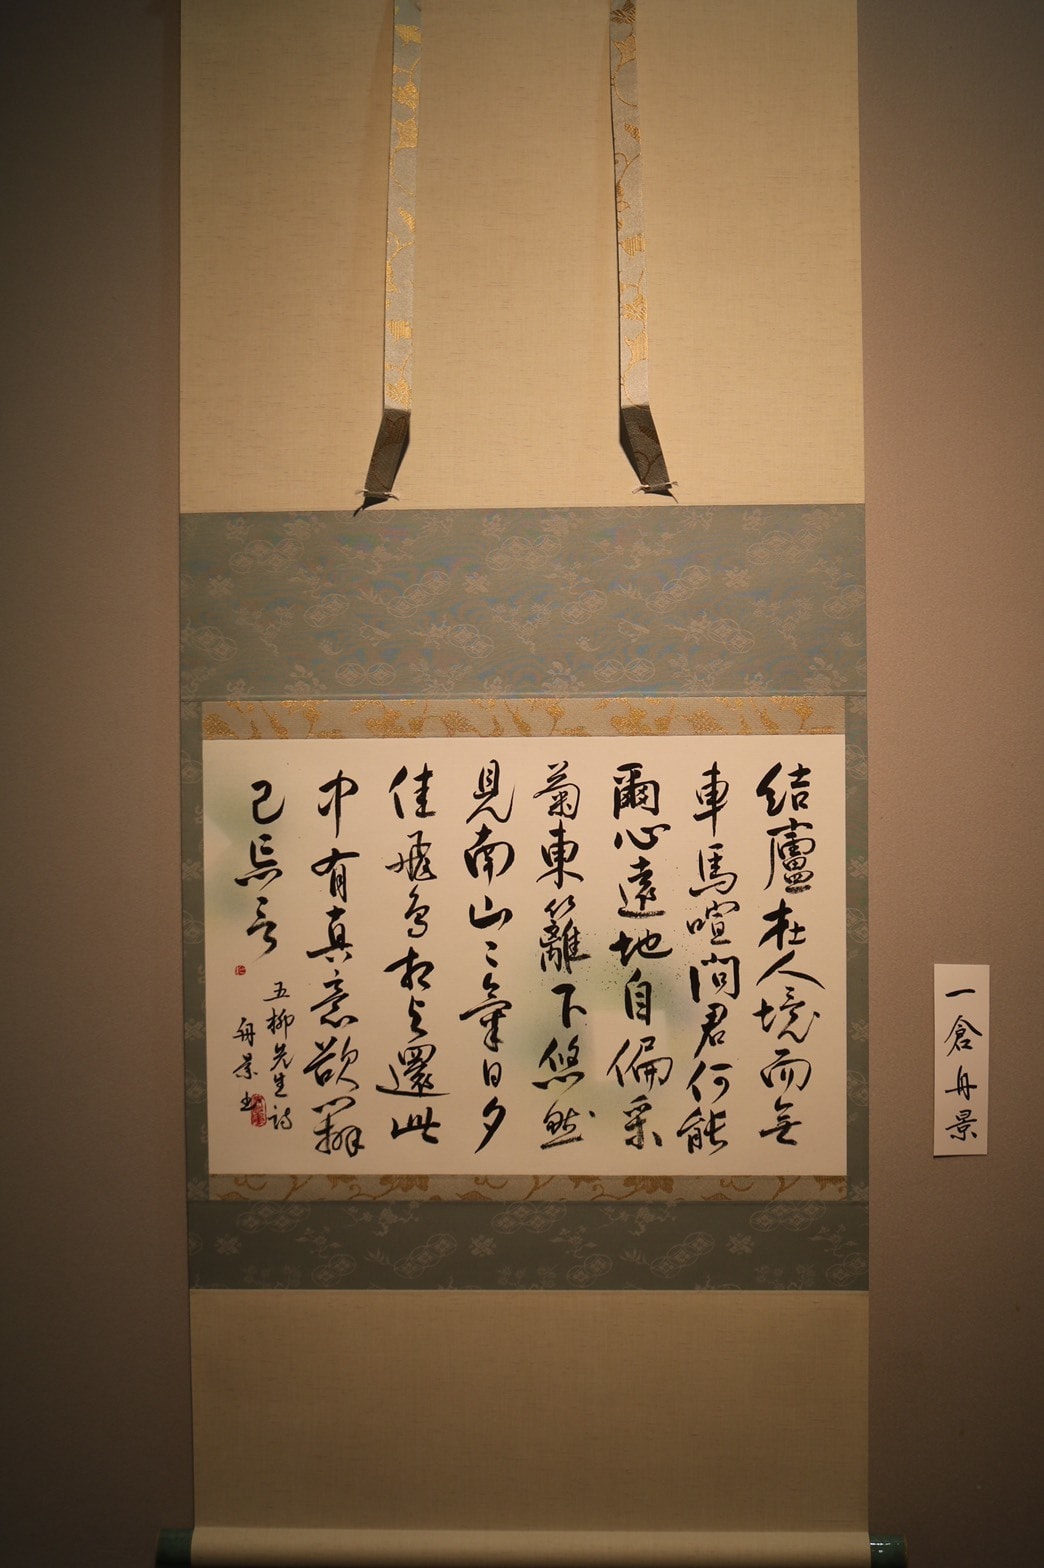 結廬在人境而無
車馬喧問君何能
爾心遠地自偏采
菊東籬下悠然
見南山〻氣日夕
佳飛鳥相与還此
中有真意欲辨
已忘言
五柳先生詩
舟景書
一倉舟景